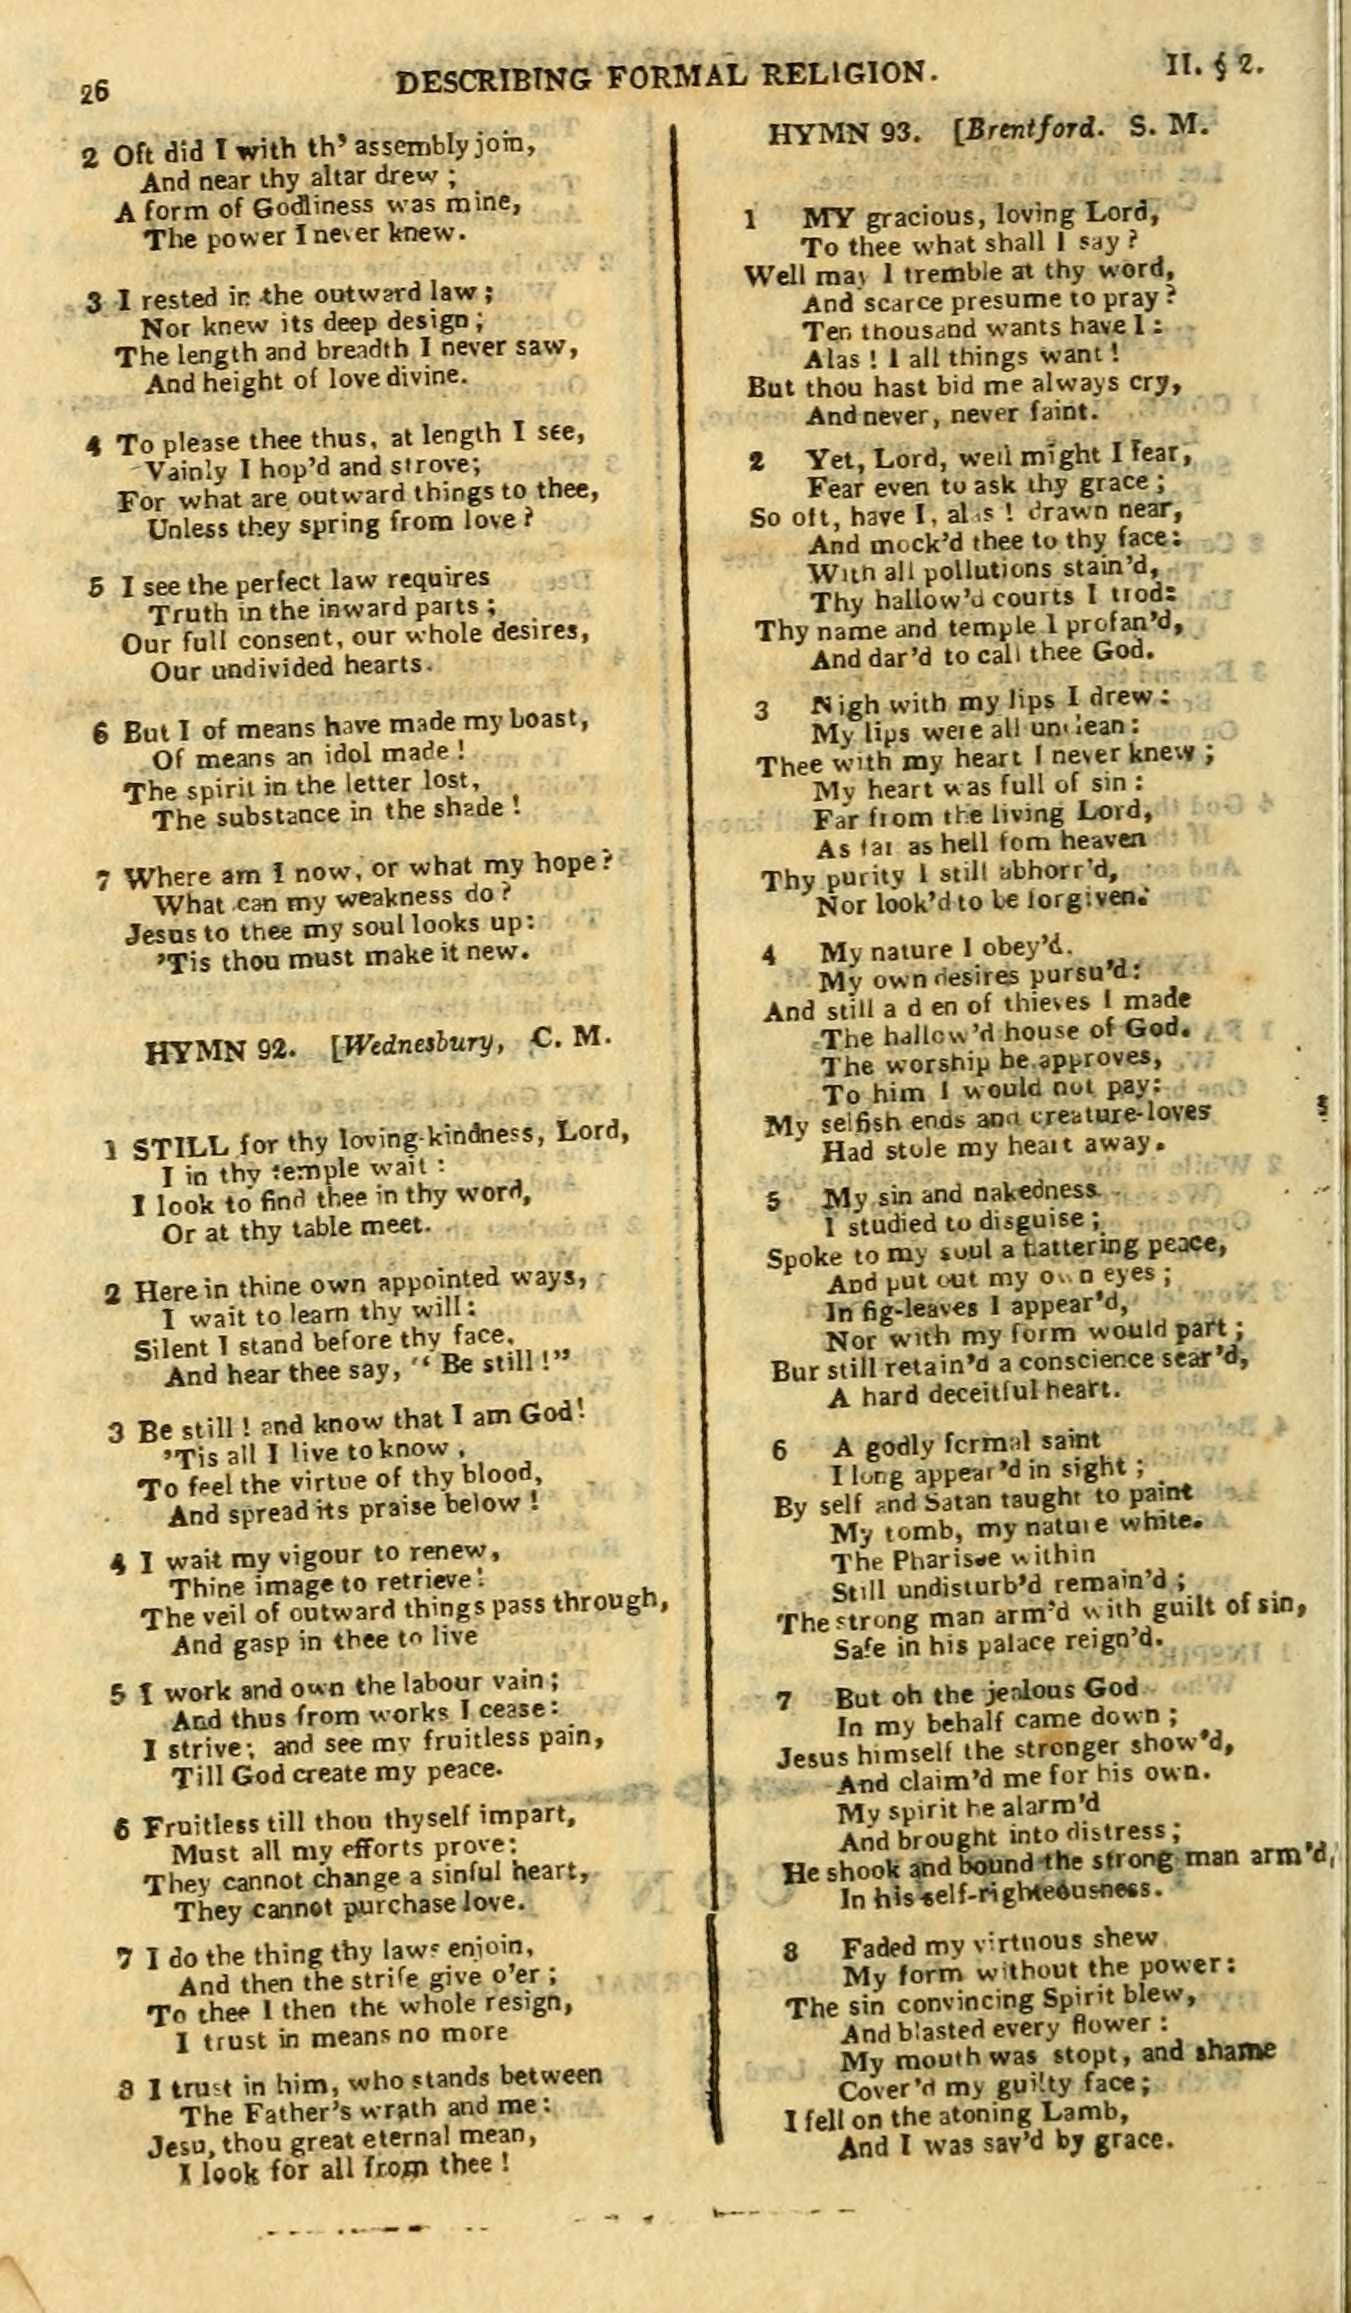 26
DESCRIBING FORMAL RELIGION.
II. § 2.
2 Oft did I with th' assembly join,
And near thy altar drew ;
A form of Godliness was mine,
The power I never knew.
3 I rested in the outward law ;
Nor knew its deep design ;
The length and breadth I never saw,
And height of love divine.
4 To please thee thus, at length I see,
Vainly I hop'd and strove;
For what are outward things to thee,
Unless they spring from love ?
5 I see the perfect law requires
Truth in the inward parts ;
Our full consent, our whole desires,
Our undivided hearts.
6 But I of means have made my boast,
Of means an idol made !
The spirit in the letter lost,
The substance in the shade !
7 Where am I now, or what my hope ?
What can my weakness do ?
Jesus to thee my soul looks up:
'Tis thou must make it new.
HYMN 92. [Wednesbury, C. M.
1 STILL for thy loving-kindness, Lord,
I in thy temple wait :
I look to find thee in thy word,
Or at thy table meet.
2 Here in thine own appointed ways,
I wait to learn thy will :
Silent I stand before thy face,
And hear thee say, " Be still !"
3 Be still ! and know that I am God !
'Tis all I live to know ,
To feel the virtue of thy blood,
And spread its praise below !
4 I wait my vigour to renew,
Thine image to retrieve :
The veil of outward things pass through,
And gasp in thee to live
5 I work and own the labour vain ;
And thus from works I cease :
I strive ; and see my fruitless pain,
Till God create my peace.
6 Fruitless till thou thyself impart,
Must all my efforts prove :
They cannot change a sinful heart,
They cannot purchase love.
7 I do the thing thy laws enjoin,
And then the strife give o'er ;
To thee I then the whole resign,
I trust in means no more
8 I trust in him, who stands between
The Father's wrath and me :
Jesu, thou great eternal mean,
I look for all from thee !
HYMN 93. [Brentford. S. M.
1 MY gracious, loving Lord,
To thee what shall I say ?
Well may I tremble at thy word,
And scarce presume to pray ?
Ten thousand wants have I :
Alas ! I all things want !
But thou hast bid me always cry,
And never, never faint.
2 Yet, Lord, well might I fear,
Fear even to ask thy grace ;
So oft, have I, alas ! drawn near,
And mock'd thee to thy face :
With all pollutions stain'd,
Thy hallow'd courts I trod :
Thy name and temple I profan'd,
And dar'd to call thee God.
3 Nigh with my lips I drew :
My lips were all unclean :
Thee with my heart I never knew ;
My heart was full of sin :
Far from the living Lord,
As far as hell fom heaven
Thy purity I still abhorr'd,
Nor look'd to be forgiven.
4 My nature I obey'd.
My own desires pursu'd :
And still a d en of thieves I made
The hallow'd house of God.
The worship he approves,
To him I would not pay :
My selfish ends and creature-loves
Had stole my heart away.
5 My sin and nakedness
I studied to disguise ;
Spoke to my soul a flattering peace,
And put out my own eyes ;
In fig-leaves I appear'd,
Nor with my form would part ;
Bur still retain'd a conscience sear'd,
A hard deceitful heart.
6 A godly formal saint
I long appear'd in sight ;
By self and Satan taught to paint
My tomb, my nature white.
The Pharisee within
Still undisturb'd remain'd ;
The strong man arm'd with guilt of sin,
Safe in his palace reign'd.
7 But oh the jealous God
In my behalf came down ;
Jesus himself the stronger show'd,
And claim'd me for his own.
My spirit he alarm'd
And brought into distress ;
He shook and bound the strong man arm'd,
In his self-righteousness.
8 Faded my virtuous shew
My form without the power :
The sin convincing Spirit blew,
And blasted every flower :
My mouth was stopt, and shame
Cover'd my guilty face ;
I fell on the atoning Lamb,
And I was sav'd by grace.